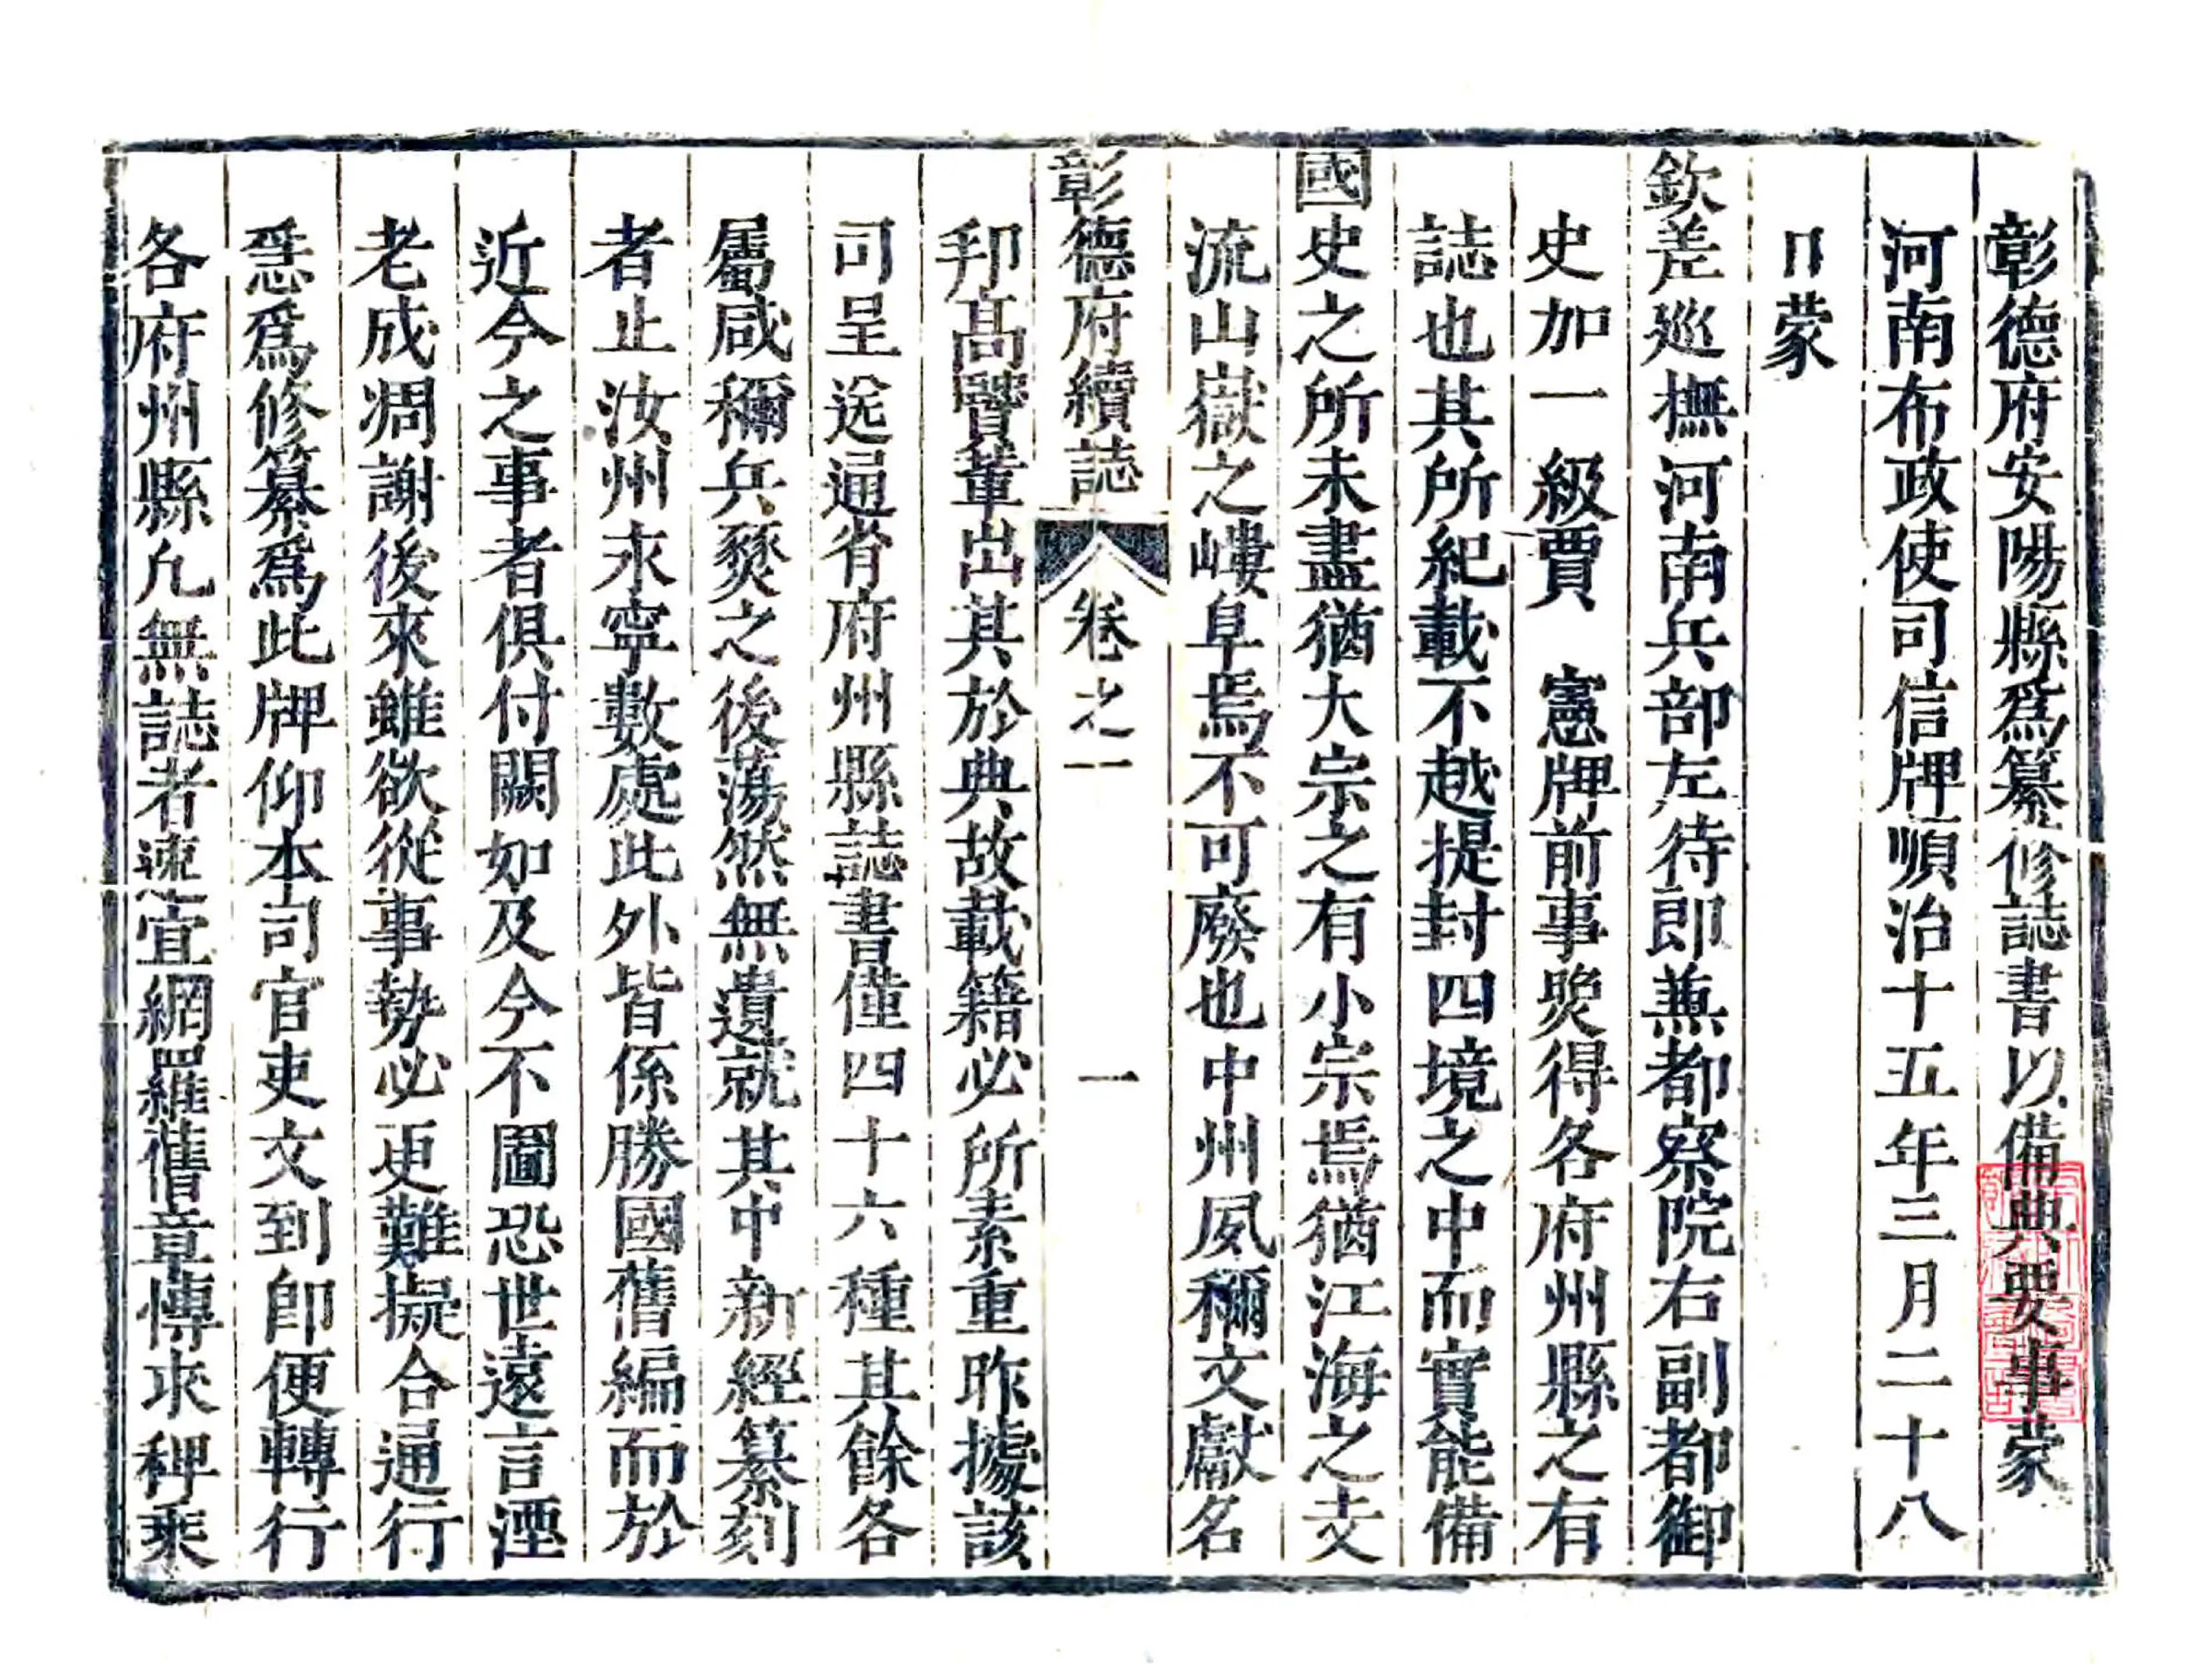 彰德府安陽縣爲纂修誌書以備典要事蒙
河南布政使司信牌順治十五年三月二十八
日蒙
欽差巡撫河南兵部左侍郎兼都察院右副都御
史加一級賈 憲牌前事照得各府州縣之有
誌也其所紀載不越提封四境之中而實能備
國史之所未盡猶大宗之有小宗焉猶江海之支
流山嶽之嶁阜焉不可廢也中州夙稱文獻名
彰德府續誌 卷之一 一
邦髙賢輩出其於典故載籍必所素重昨據該
司呈送通省府州縣誌書僅四十六種其餘各
屬咸稱兵燹之後蕩然無遺就其中新經纂刻
者止汝州永寧數處此外皆係勝國舊編而於
近今之事者俱付闕如及今不圖恐世遠言湮
老成凋謝後來雖欲從事勢必更難擬合通行
爲修纂爲此牌仰本司官吏文到即便轉行
各府州縣凡無誌者速宜網羅舊章博求稗乘